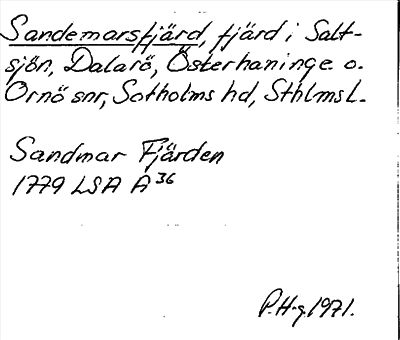 Sandemarsfjärd, fjärd i Salt-
sjön, Dalarö, Österhaninge o.
Ornö snr, Sotholms hd, Sthlms L.
Sandmar Fjärden
1779 LSA A 36
P.H-g. 1971.